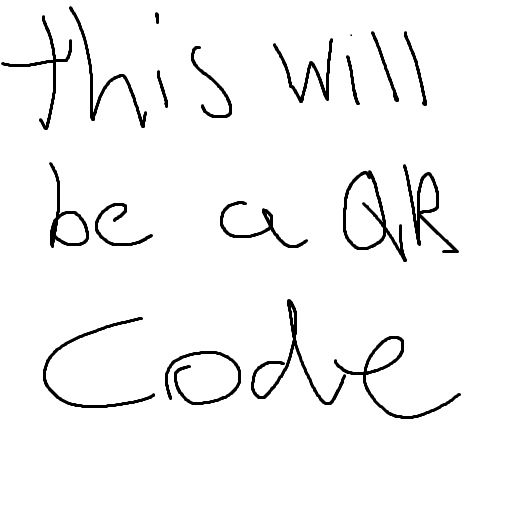 this will
be a QR
Code